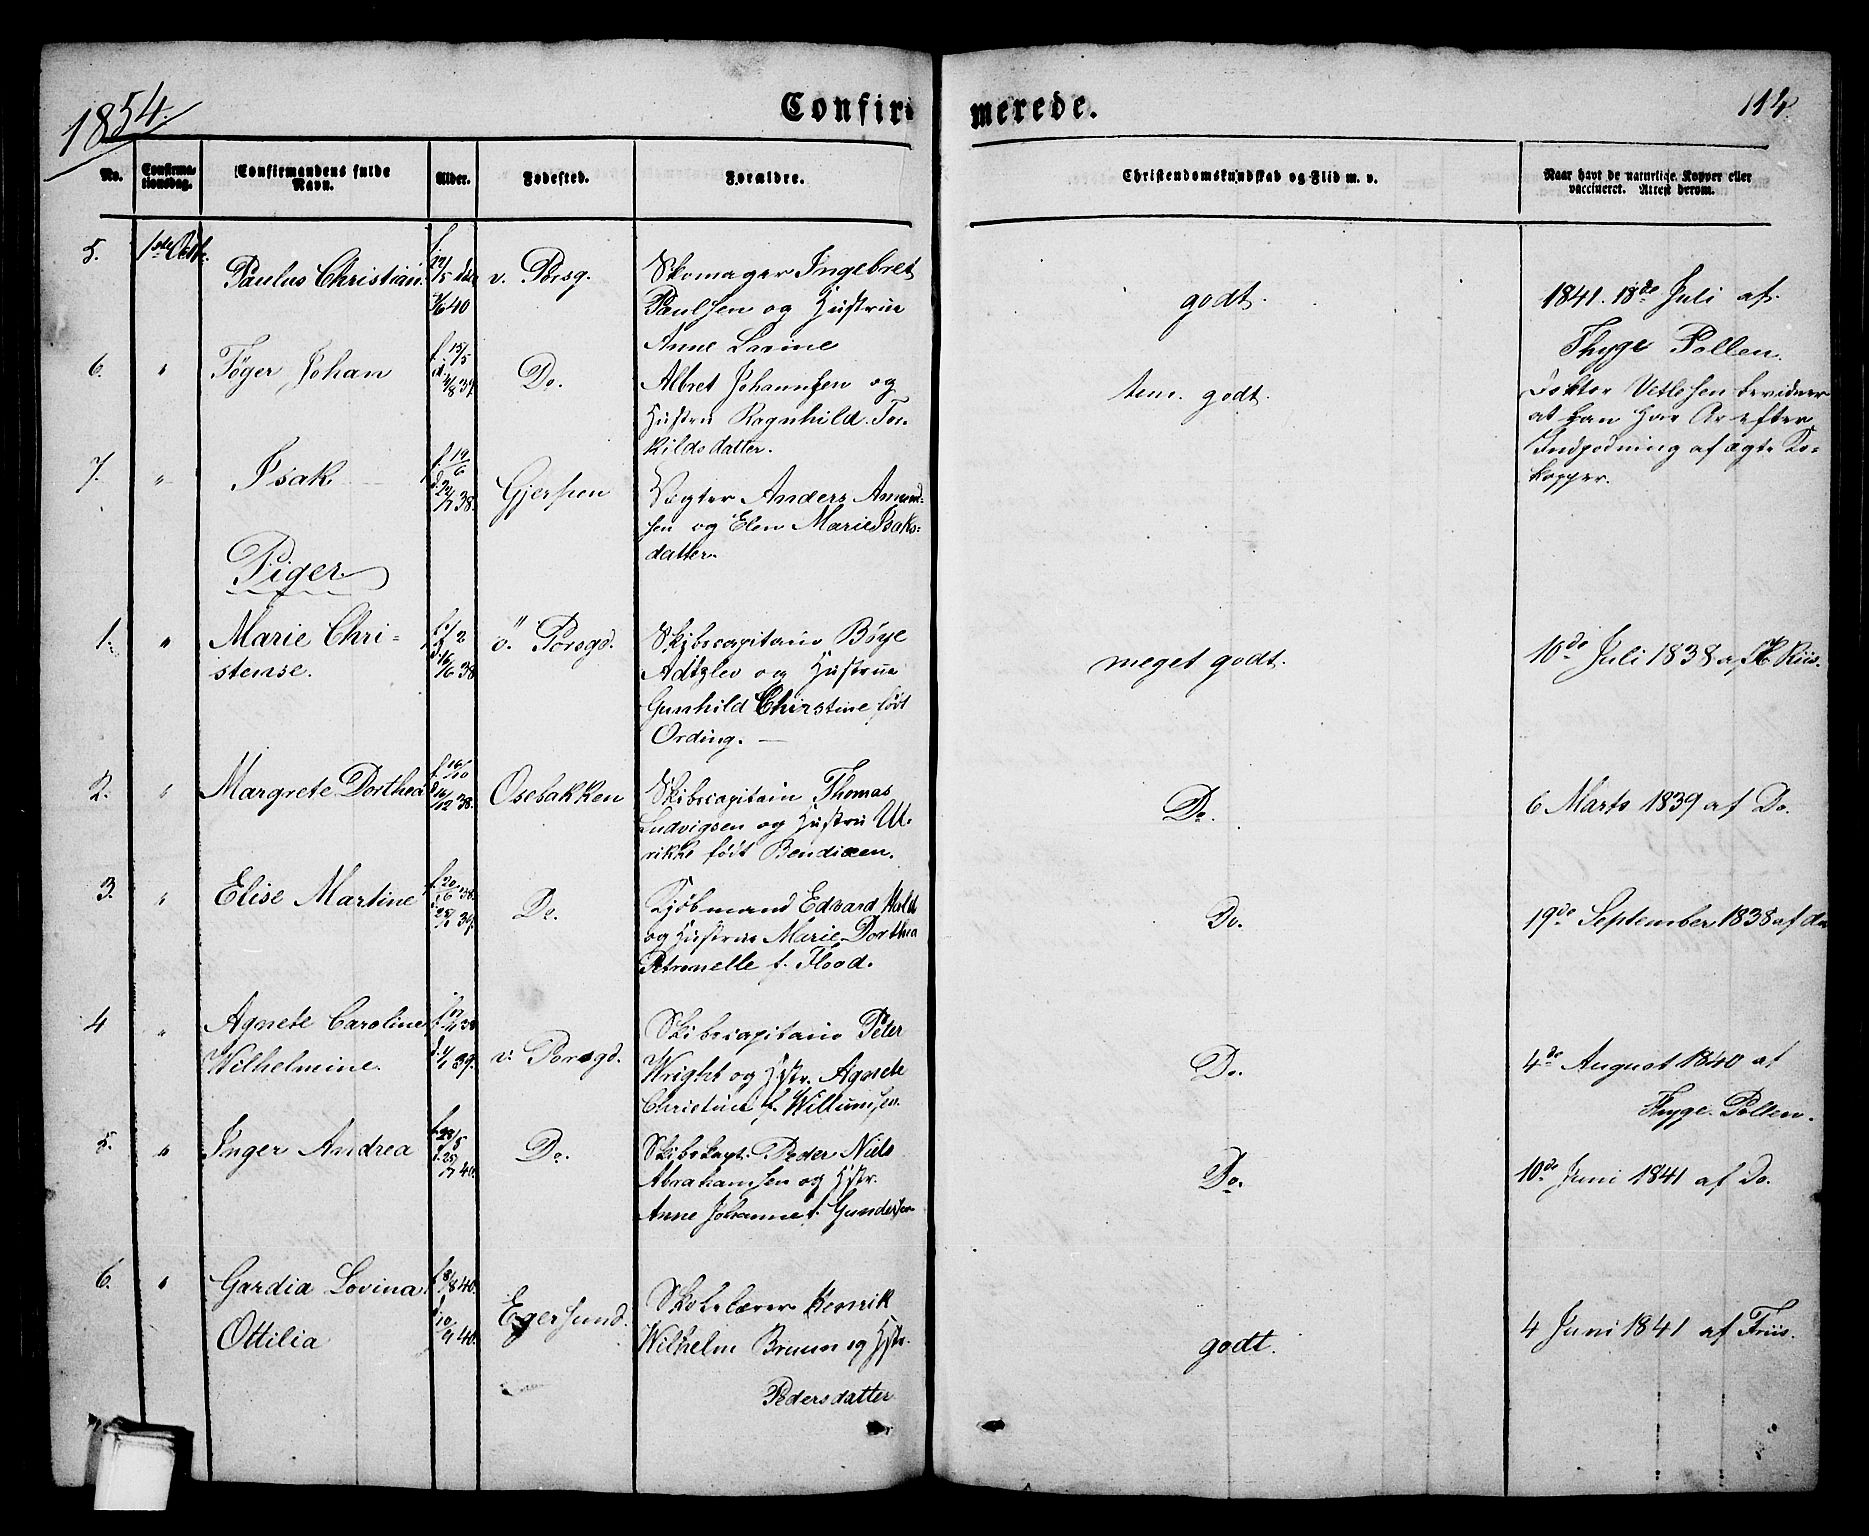 1854.
Confirmerede.
114.
No.
Confirmationsdag.
Confirmandens fulde Navn.
Alder.
Fødested.
Forældre.
Christendomskundskab og Flid m. v.
Naar havt de naturlige Kopper eller vaccineret. Attest derom.
5. 1ste Octbr. Paulus Christian. v. Porsg. Skomager Ingebret
Paulsen og Hustrue
Anne Lovine
godt.
1841. 18de Juli af
Thyge Pollen.
6. " Tøger Johan f. 15/5 Do. Albret Johannsen og
Hustru Ragnhild Tor-
kildsdatter.
tem. godt.
Doktor Vetlesen bevidner
at han har Ar efter
Indpodning af ægte Ko-
kopper.
7. " Isak f. 19/6 38. Gjerpen Vægter Anders Amund-
sen og Elen Marie Isaks-
datter.
Piger
1. " Marie Chri-
stense.
ö. Porsgd. Skibscapitain Bøye
Adtzlev og Hustrue
Gunhild Chirstine født
Ording.
meget godt.
10de Juli 1838 af Riis.
2. " Margrete Dorthea f. 16/10 38. Osebakken Skibscapitain Thomas
Ludvigsen og Hustru Ul-
rikke født Bendixen.
Do.
6 Marts 1839 af Do.
3. " Elise Martine f. 20/6 38. Do. Kjøbmand Edvard Hald
og Hustrue Marie Dorthea
Petronelle f. Flood.
Do.
19de September 1838 af do
4 " Agnete Caroline
Wilhelmine.
v. Porsgd. Skibscapitain Peter
Wright og Hstr. Agnete
Christine f. Willumsen.
Do.
4de August 1840 af
Thyge Pollen.
5. " Inger Andrea 40. Do. Skibskapt. Peder Niels
Abrahamsen og Hstr.
Anne Johanne f. Gundersen
Do.
10de Juni 1841 af Do.
6. " Gardia Lovina
Ottilia
f. 8/8 40. Egersund. Skolelærer Henrik
Wilhelm Bruun og Hstr.
Pedersdatter
godt.
4 Juni 1841 af Friis.